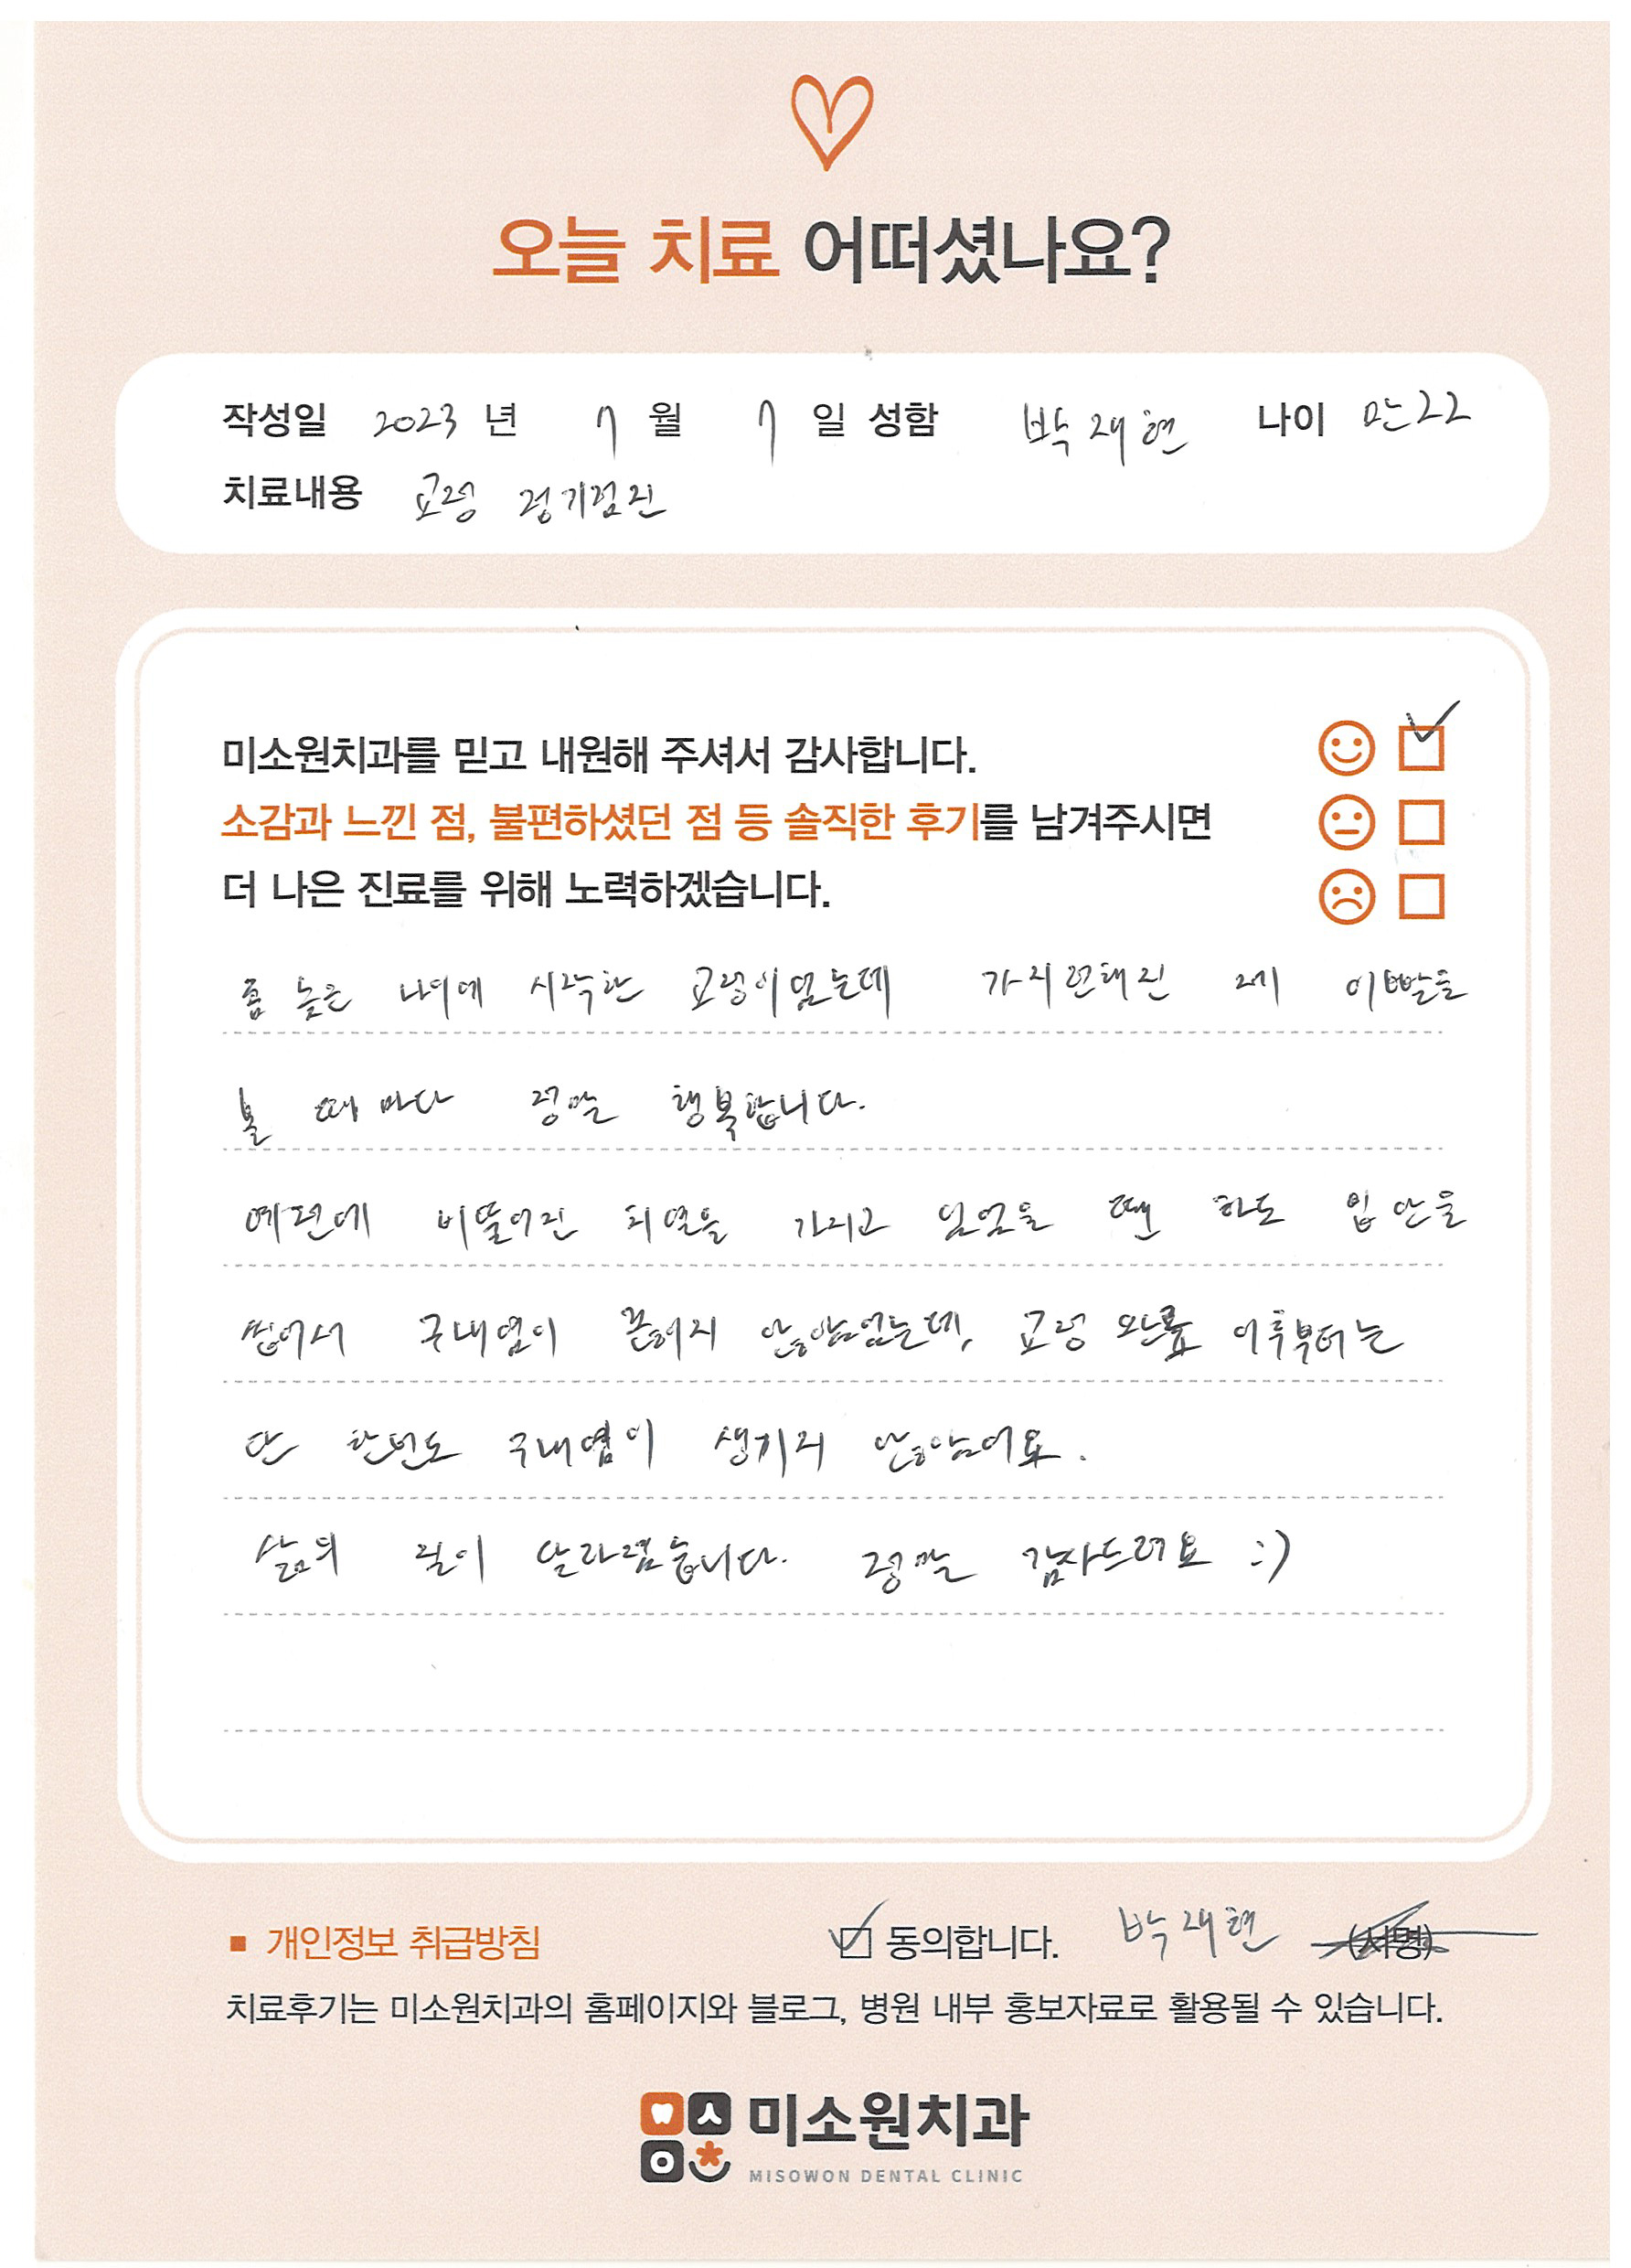 오늘 치료 어떠셨나요?
작성일 2023 년 7 월 7 일 성함 박재현 나이 만22
치료내용 교정 정기검진
미소원치과를 믿고 내원해 주셔서 감사합니다.
소감과 느낀 점, 불편하셨던 점 등 솔직한 후기를 남겨주시면
더 나은 진료를 위해 노력하겠습니다.
좀 늦은 나이에 시작한 교정이었는데 가지런해진 제 이빨을
볼 때마다 정말 행복합니다.
예전에 비뚤어진 치열을 가지고 있었을 땐 하도 입 안을
씹어서 구내염이 끊이지 않았었는데, 교정 완료 이후부터는
단 한번도 구내염이 생기지 않았어요.
삶의 질이 달라졌습니다. 정말 감사드려요 :)
개인정보 취급방침 동의합니다. 박재현 (서명)
치료후기는 미소원치과의 홈페이지와 블로그, 병원 내부 홍보자료로 활용될 수 있습니다.
미소원치과
MISOWON DENTAL CLINIC